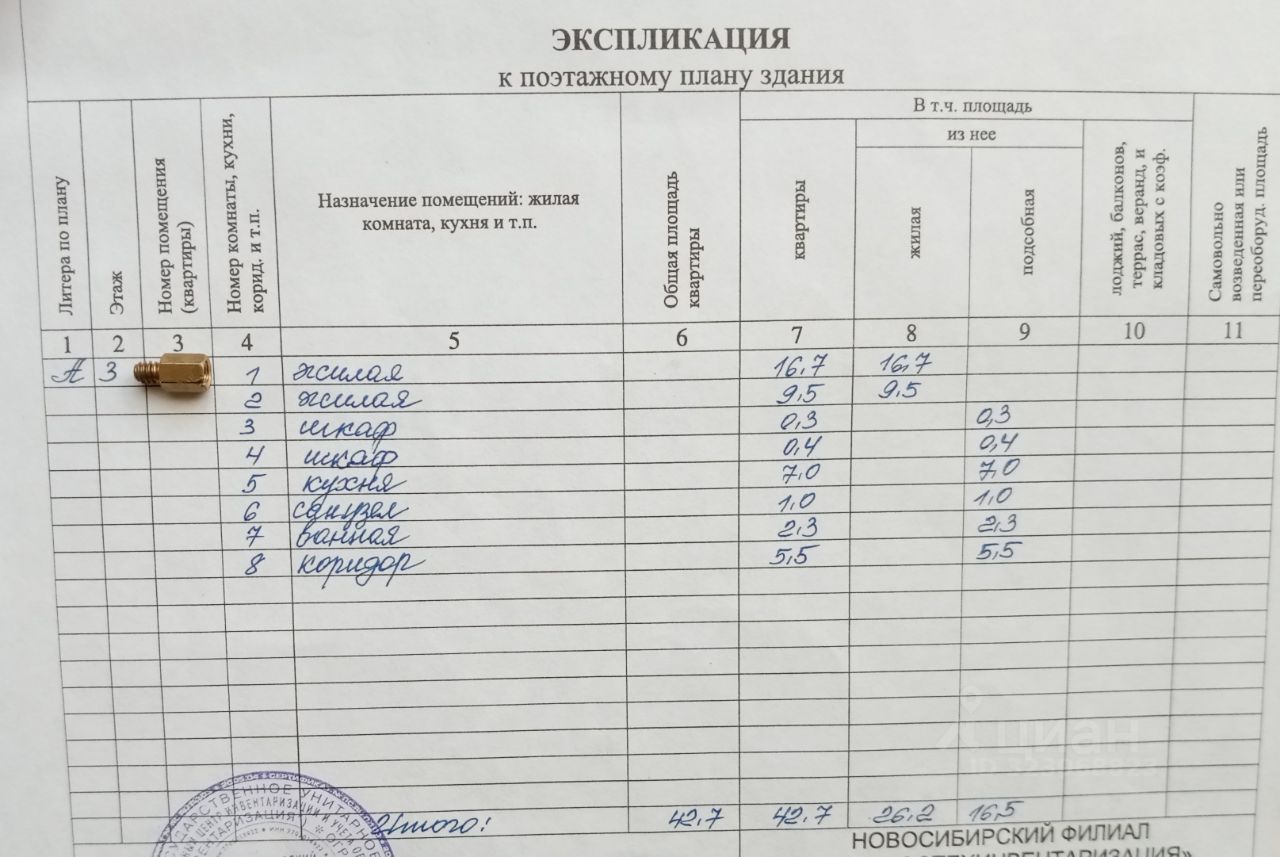 ЭКСПЛИКАЦИЯ
к поэтажному плану здания
Литера по плану
Этаж
Номер помещения (квартиры)
Номер комнаты, кухни, корид. и т.п.
Назначение помещений: жилая
комната, кухня и т.п.
Общая площадь квартиры
В т.ч. площадь
квартиры
из нее
жилая
подсобная
лоджий, балконов, террас, веранд, и кладовых с коэф.
Самовольно возведенная или переоборуд. площадь
1 2 3 4 5 6 7 8 9 10 11
А 3 1 жилая 16,7 16,7
2 жилая 9,5 9,5
3 шкаф 0,3 0,3
4 шкаф 0,4 0,4
5 кухня 7,0 7,0
6 санузел 1,0 1,0
7 ванная 2,3 2,3
8 коридор 5,5 5,5
Итого: 42,7 42,7 26,2 16,5
НОВОСИБИРСКИЙ ФИЛИАЛ
ЦИАН